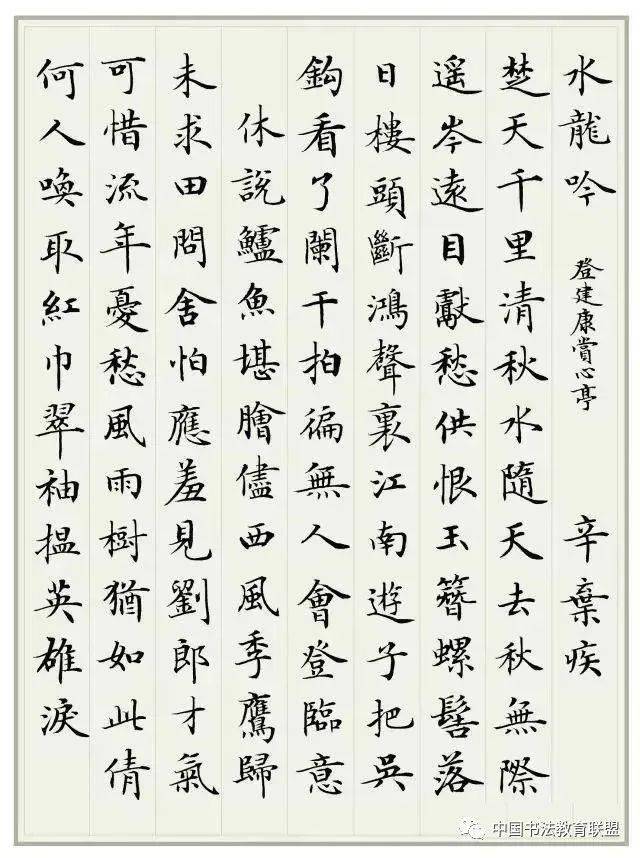 水龍吟 登建康賞心亭 辛棄疾
楚天千里清秋水隨天去秋無際
遥岑遠目獻愁供恨玉簪螺髻落
日樓頭斷鴻聲裏江南遊子把吳
鉤看了闌干拍徧無人會登臨意
休説鱸魚堪膾儘西風季鷹歸
未求田問舍怕應羞見劉郎才氣
可惜流年憂愁風雨樹猶如此倩
何人喚取紅巾翠袖揾英雄淚
中国书法教育联盟